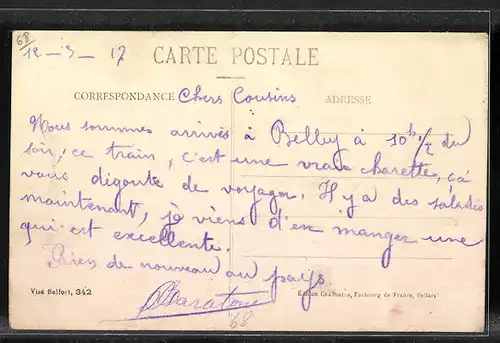 68
12-3-17
CARTE POSTALE
CORRESPONDANCE Chers Cousins ADRESSE
Nous sommes arrivés à Belley à 10h 1/2 du
soir; ce train, c'est une vraie charette, ça
vous digoute de voyager. Il y a des salades
maintenant, je viens d'en manger une
qui est excellente.
Rien de nouveau au pays.
Visé Belfort, 342
Faubourg de France, Belfort
68